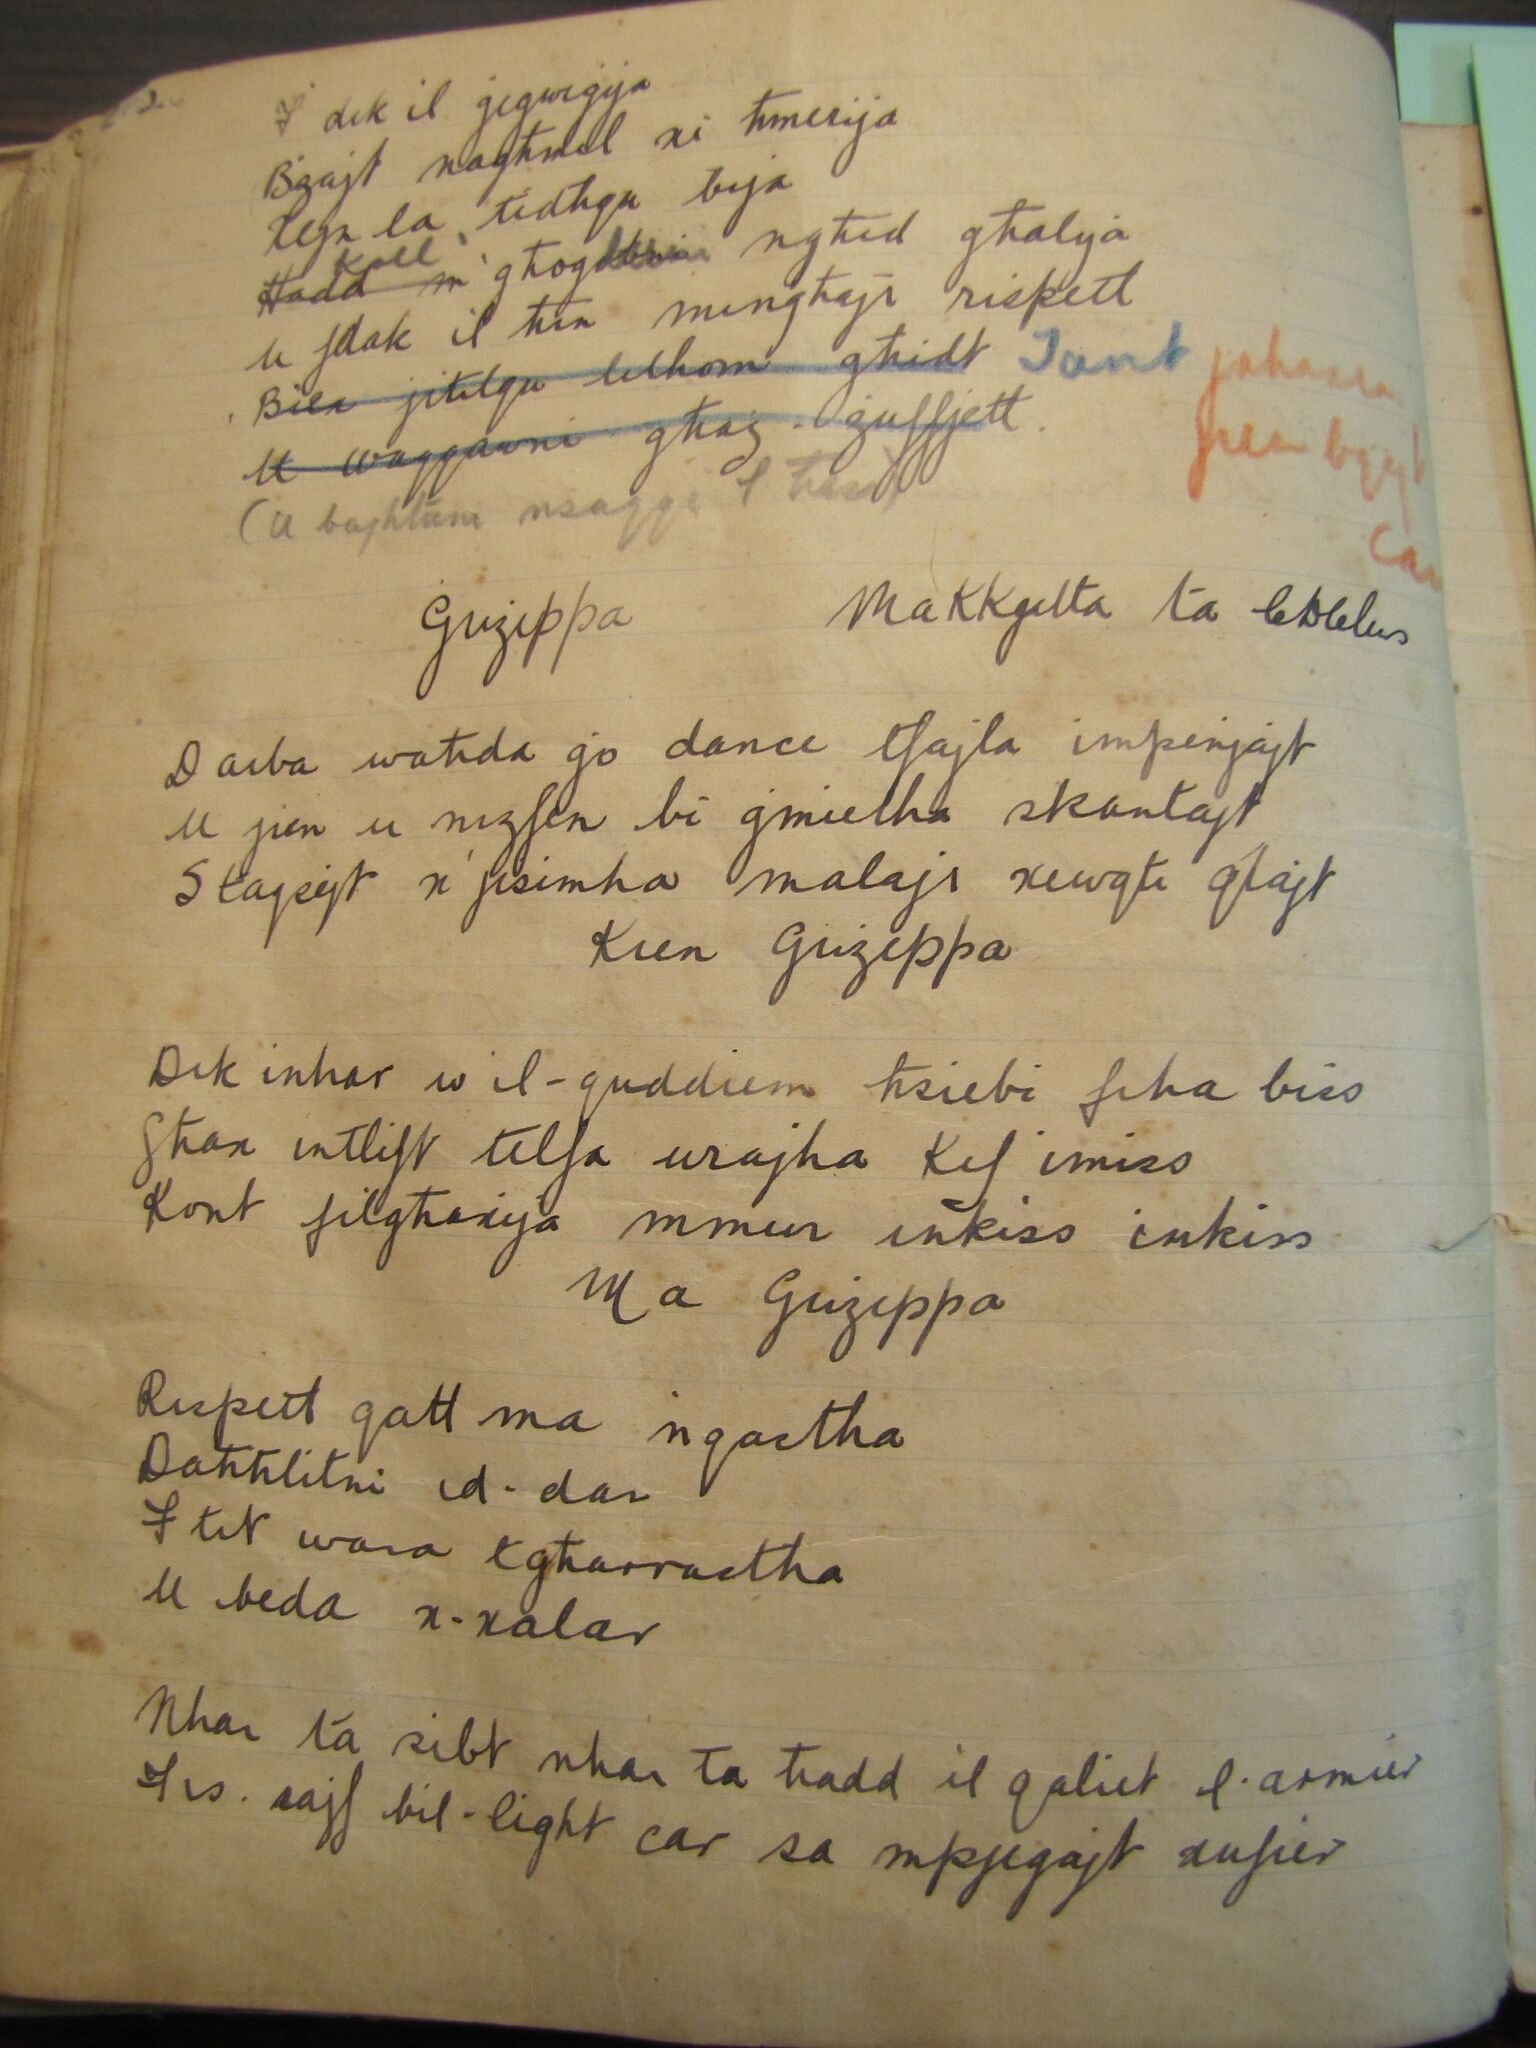 F dik il ġegwiġija
Bżajt nagħmel xi ħmerija
Kell
Hadd m' għog ngħid għalija
U fdak il ħin mingħajr rispett
Bies jitilqu lelhom għidt Jant
U waqqawni għaż-żuffjett.
(U bagħtuni nsaqqi l
Ġużeppa Makkjetta ta bblelus
Darba waħda ġo dance tfajla impinjajt
U jien u niżfen bi ġmielha skantajt
Staqsejt x'jisimha malajr xewqti qtajt
Kien Ġużeppa
Dik inhar w il-quddiem ħsiebi fiha biss
Għax intlift tilfa wrajha kif imiss
Kont filgħaxija mmur inkiss inkiss
Ma Ġużeppa
Rispett qatt ma nqastha
Daħħlitni id-dar
F ħit wara tgħarrastha
U beda x-xalar
Nhar ta sibt nhar ta ħadd il qaliet l-armier
F is-sajf bil-light car sa mpjegajt xufier